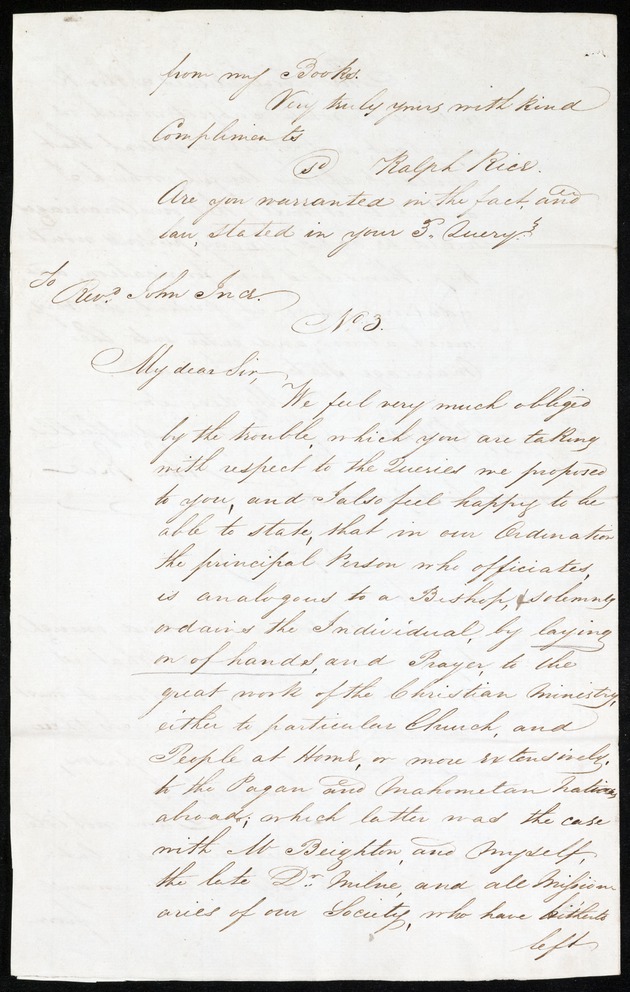 from my Books.
Very truly yours with kind
Compliments
Ralph Rice.
Are you warranted in the fact, and
law, stated in your 3d. Query?
To
Revd. John Ince.
No 3.
My dear Sir,
We feel very much obliged
by the trouble, which you are taking
with respect to the Queries we proposed
to you, and I also feel happy to be
able to state, that in our Ordination
the principal Person who officiates,
is analogous to a Bishop, solemnly
ordains the Individual, by laying
on of hands, and Prayer, to the
great work of the Christian Ministry,
either to particular Church, and
People at Home, or more extensively,
to the Pagan and Mahometan Nations
abroad; which latter was the case
with Mr Beighton, and Myself,
the late Dr. Milne, and all Mission
aries of our Society, who have hitherto
left